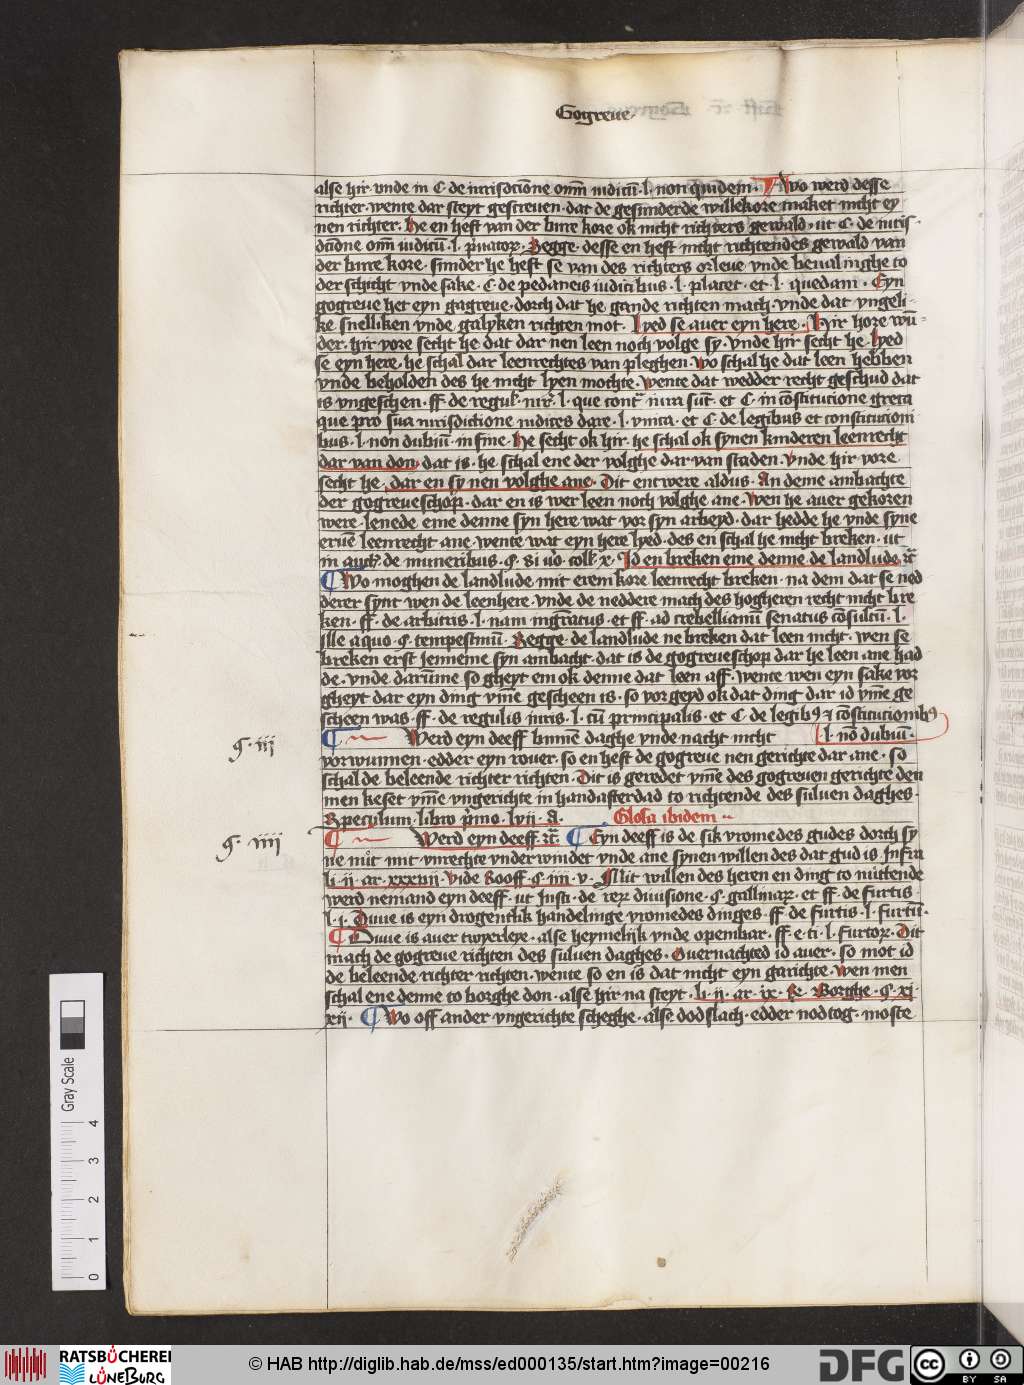 Gogreue
alse hir vnde in C de iurisdictione omnium iudicum · l · non quidem · Wo werd desse
richter · wente dar steyt gescreuen · dat de gesunderde willekore maket nicht ey
nen richter · he en heft van der bure kore ok nicht richters gewald · ut C · de iuris
dictione omnium iudicum · l · priuatorum · Segge · desse en heft nicht richtendes gewald van
der bure kore · sunder he heft se van des richters orleue vnde beualinghe to
der schicht vnde sake · C de pedaneis iudicibus · l · placet · et · l · quedam · Eyn
gogreue het eyn gagreue · dorch dat he gande richten mach · vnde dat vngeli-
ke snelliken vnde galyken richten mot · lyed se auer eyn here · Hir hore wun-
der · hir vore secht he dat dar nen leen noch volge sy · vnde hir secht he · lyed
se eyn here, he schal dar leenrechtes van pleghen · Wo schal he dat leen hebben
vnde beholden des he nicht lyen mochte · Wente dat wedder recht geschud dat
is vngeschen · ff · de regul · iur · l · que contra iura sunt · et C · in constitucione greca
que pro sua iurisdictione iudices dare · l · vnica · et C · de legibus et constitucioni
bus · l · non dubium · in fine · He secht ok hir · he schal ok synen kinderen leenrecht
dar van don, dat is · he schal ene der volghe dar van staden · Vnde hir vore
secht he, dar en sy nen volghe ane · Dit entwere aldus · An deme ambachte
der gogreueschop · dar en is wer leen noch volghe ane · Wen he auer gekoren
were · lenede eme denne syn here wat vor syn arbeyd · dar hedde he vnde syne
eruen leenrecht ane · wente wat eyn here lyed · des en schal he nicht breken · ut
in auch · de muneribus · § · si vero · coll · x · Id en breken eme denne de landlude etc
¶ Wo moghen de landlude mit erem kore leenrecht breken · na dem dat se ned
derer synt wen de leenhere · vnde de neddere mach des hogheren recht nicht bre
ken · ff · de arbitris · l · nam magistratus · et ff · ad trebellianum senatus consultum · l ·
ille a quo · § · tempestiuum · Segge · de landlude ne breken dat leen nicht · wen se
breken erst jenneme syn ambacht · dat is de gogreueschop dar he leen ane had
de · vnde darumme so gheyt em ok denne dat leen aff · wente wen eyn sake vor
gheyt dar eyn ding vmme gescheen is · so vorgeyd ok dat ding dar id vmme ge
scheen was · ff · de regulis iuris · l · cum principalis · et C · de legibus et constitucionibus
§ · iii
¶ Werd eyn deeff binnen daghe vnde nacht nicht l · non dubium ·
vorwunnen · edder eyn rouer · so en heft de gogreue nen gerichte dar ane · so
schal de beleende richter richten · Dit is geredet vmme des gogreuen gerichte den
men keset vmme vngerichte in handasterdad to richtende des suluen daghes ·
Speculum · libro primo · lvii · A · Glosa ibidem
§ · iiii
¶ Werd eyn deeff · etc · ¶ Eyn deeff is de sik vromedes gudes dorch sy
ne nut mit vnrechte vnderwindet vnde ane synen willen des dat gud is · Infra
li · ii · ar · xxxvii · Vide Rooff · § · iii · v · Mit willen des heren en ding to nuttende
werd nemand eyn deeff · ut Insti · de rerum diuisione · § · gallinarum · et ff · de furtis ·
l · i · Duue is eyn drogentlik handelinge vromedes dinges · ff de furtis · l · furtum ·
¶ Duue is auer twyerleye · alse heymelijk vnde openbar · ff · e · ti · l · furtorum · Dit
mach de gogreue richten des suluen daghes · Ouernachted id auer · so mot id
de beleende richter richten · wente so en is dat nicht eyn garichte · Wen men
schal ene denne to borghe don · alse hir na steyt · li · ii · ar · ix · Re · Borghe · § · xi ·
xii · ¶ Wo off ander vngerichte scheghe · alse dodslach · edder nodtog · moste
Gray Scale
0 1 2 3 4
RATSBÜCHEREI
LÜNEBURG
© HAB http://diglib.hab.de/mss/ed000135/start.htm?image=00216
DFG
CC BY SA